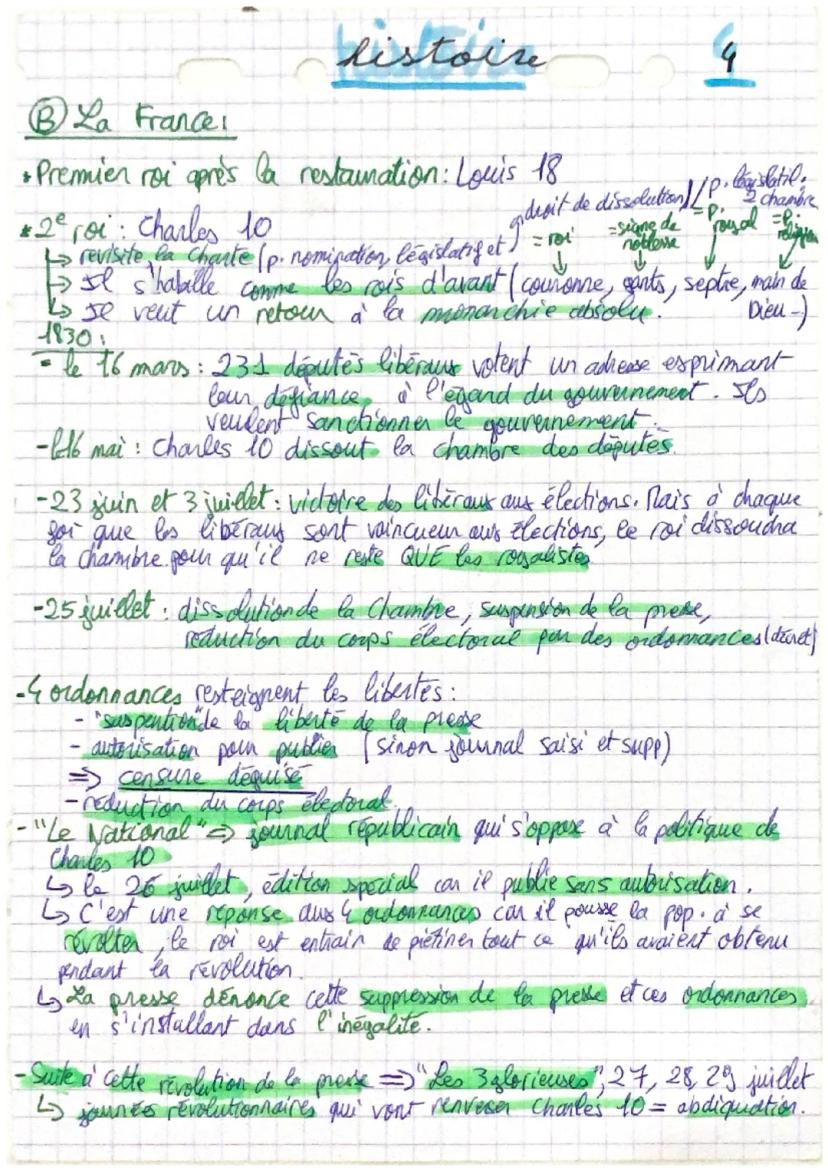 histoire 4
Ⓑ La France:
* Premier roi après la restauration: Louis 18
* 2e roi : Charles 10
↳ revisite la Charte (p. nomination, législatif et droit de dissolution) / p. législatif: 2 chambre
= roi = signe de noblesse = p. royal = p. religieux
↳ Il s'habille comme les rois d'avant (couronne, gants, septre, main de Dieu-)
↳ Il veut un retour à la monarchie absolu.
1830 :
- le 16 mars : 231 députés libéraux votent un adresse esprimant
leur défiance à l'égard du gouvernement. Ils
veulent sanctionner le gouvernement.
- le 16 mai : Charles 10 dissout la chambre des députés.
- 23 juin et 3 juillet : victoire des libéraux aux élections. Mais à chaque
foi que les libéraux sont vaincueur aux élections, le roi dissoudra
la chambre pour qu'il ne reste QUE les royalistes
- 25 juillet : dissolution de la Chambre, suspension de la presse,
réduction du corps électoral par des ordonnances (décret)
- 4 ordonnances resteignent les libertés :
- "suspention" de la liberté de la presse
- autorisation pour publier (sinon journal saisi et supp)
⇒ censure déguisé
- réduction du corps électoral.
- "Le National" ⇒ journal républicain qui s'oppose à la politique de
Charles 10
↳ le 26 juillet, édition spécial car il publie sans autorisation.
↳ C'est une réponse aux 4 ordonnances car il pousse la pop. à se
révolter, le roi est entrain de piétiner tout ce qu'ils avaient obtenu
pendant la révolution.
↳ La presse dénonce cette suppression de la presse et ces ordonnances
en s'installant dans l'inégalité.
- Suite à cette révolution de la presse ⇒ "Les 3 glorieuses", 27, 28, 29 juillet
↳ journées révolutionnaires qui vont renverser Charles 10 = abdiquation.